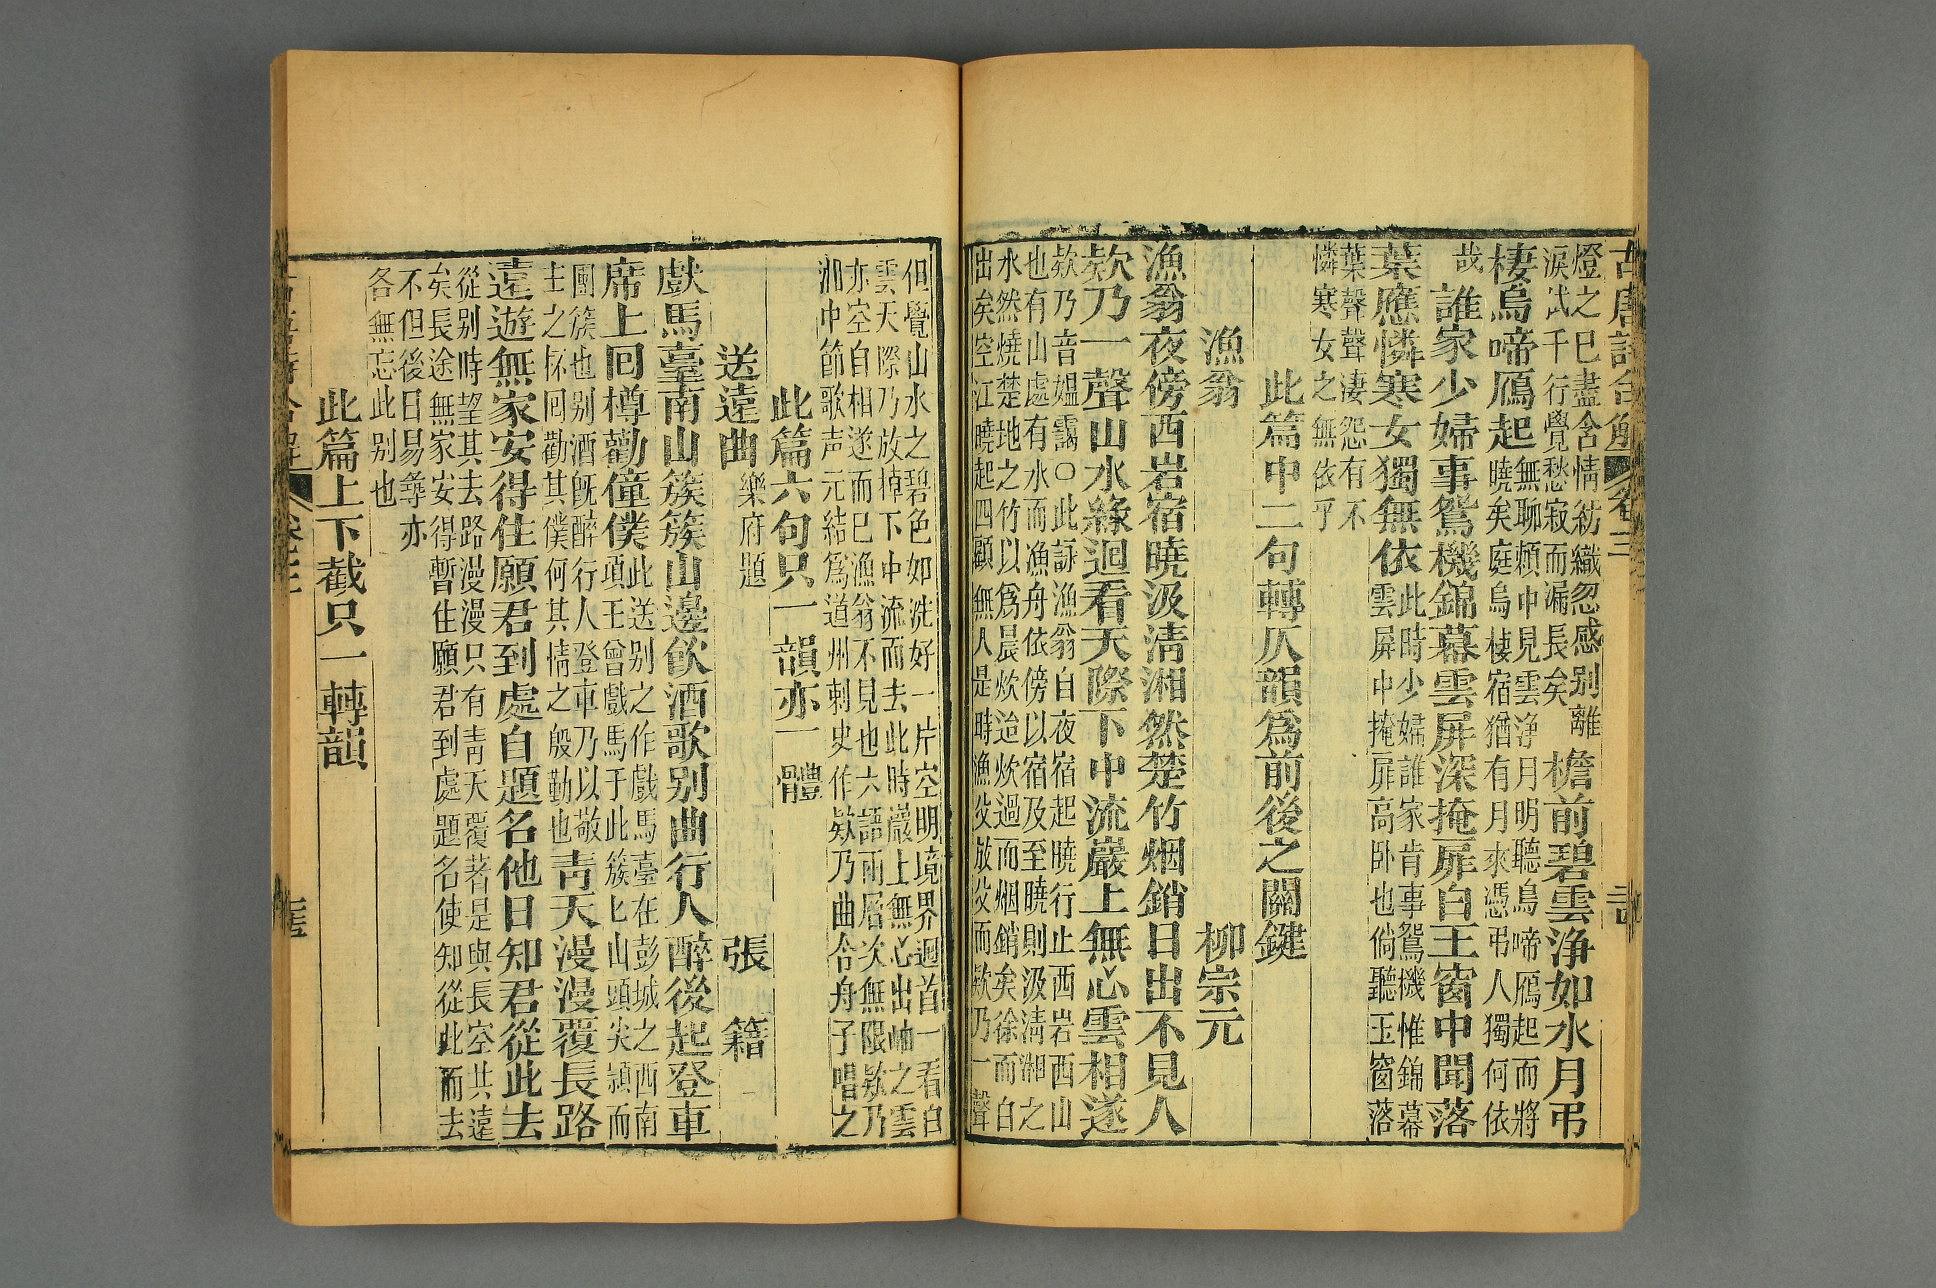 古唐詩合解
卷三
燈之巳盡含情紡織忽感別離
淚忒千行覺愁寂而漏長矣
檐前碧雲浄如水月弔
棲烏啼鴈起
無聊頼中見雲浄月明聽烏啼鴈起而將
曉矣庭烏棲宿猶有月來憑弔人獨何依
哉
誰家少婦事鴛機錦幕雲屏深掩扉白玉窗中聞落
葉應憐寒女獨無依
此時少婦誰家肯事鴛機惟錦幕
雲屏中掩扉高卧也倘聽玉窗落
葉聲聲淒怨有不
憐寒女之無依乎
此篇中二句轉仄韻爲前後之關鍵
漁翁
柳宗元
漁翁夜傍西岩宿曉汲淸湘然楚竹烟銷日出不見人
欸乃一聲山水綠迴看天際下中流巖上無心雲相遂
欸乃音媪靄○此詠漁翁自夜宿起曉行止西岩西山
也有山處有水而漁舟依傍以宿及至曉則汲淸湘之
水然燒楚地之竹以爲晨炊迨炊過而烟銷矣徐而白
出矣空江曉起四顧無人是時漁父放父而欸乃一聲
但覺山水之碧色如洗好一片空明境界迴首一看白
雲天際乃放掉下中流而去此時巖上無心出岫之雲
亦空自相遂而巳漁翁不見也六語兩層次無限欸乃
湘中節歌声元結爲道州刺史作欸乃曲令舟子唱之
此篇六句只一韻亦一體
送遠曲
樂府題
張籍
戲馬臺南山簇簇山邊飲酒歌别曲行人醉後起登車
席上回樽勸僮僕
此送别之作戲馬臺在彭城之西南
項王曾戲馬于此簇匕山頭尖頴而
團簇也别酒旣醉行人登車乃以敬
主之杯囘勸其僕何其情之殷勤也
靑天漫漫覆長路
遠遊無家安得住願君到處自題名他日知君從此去
從别時望其去路漫漫只有靑天覆著是與長空共遠
矣長途無家安得暫住願君到處題名使知從此而去
不但後日易尋亦
各無忘此别也
此篇上下截只一轉韻